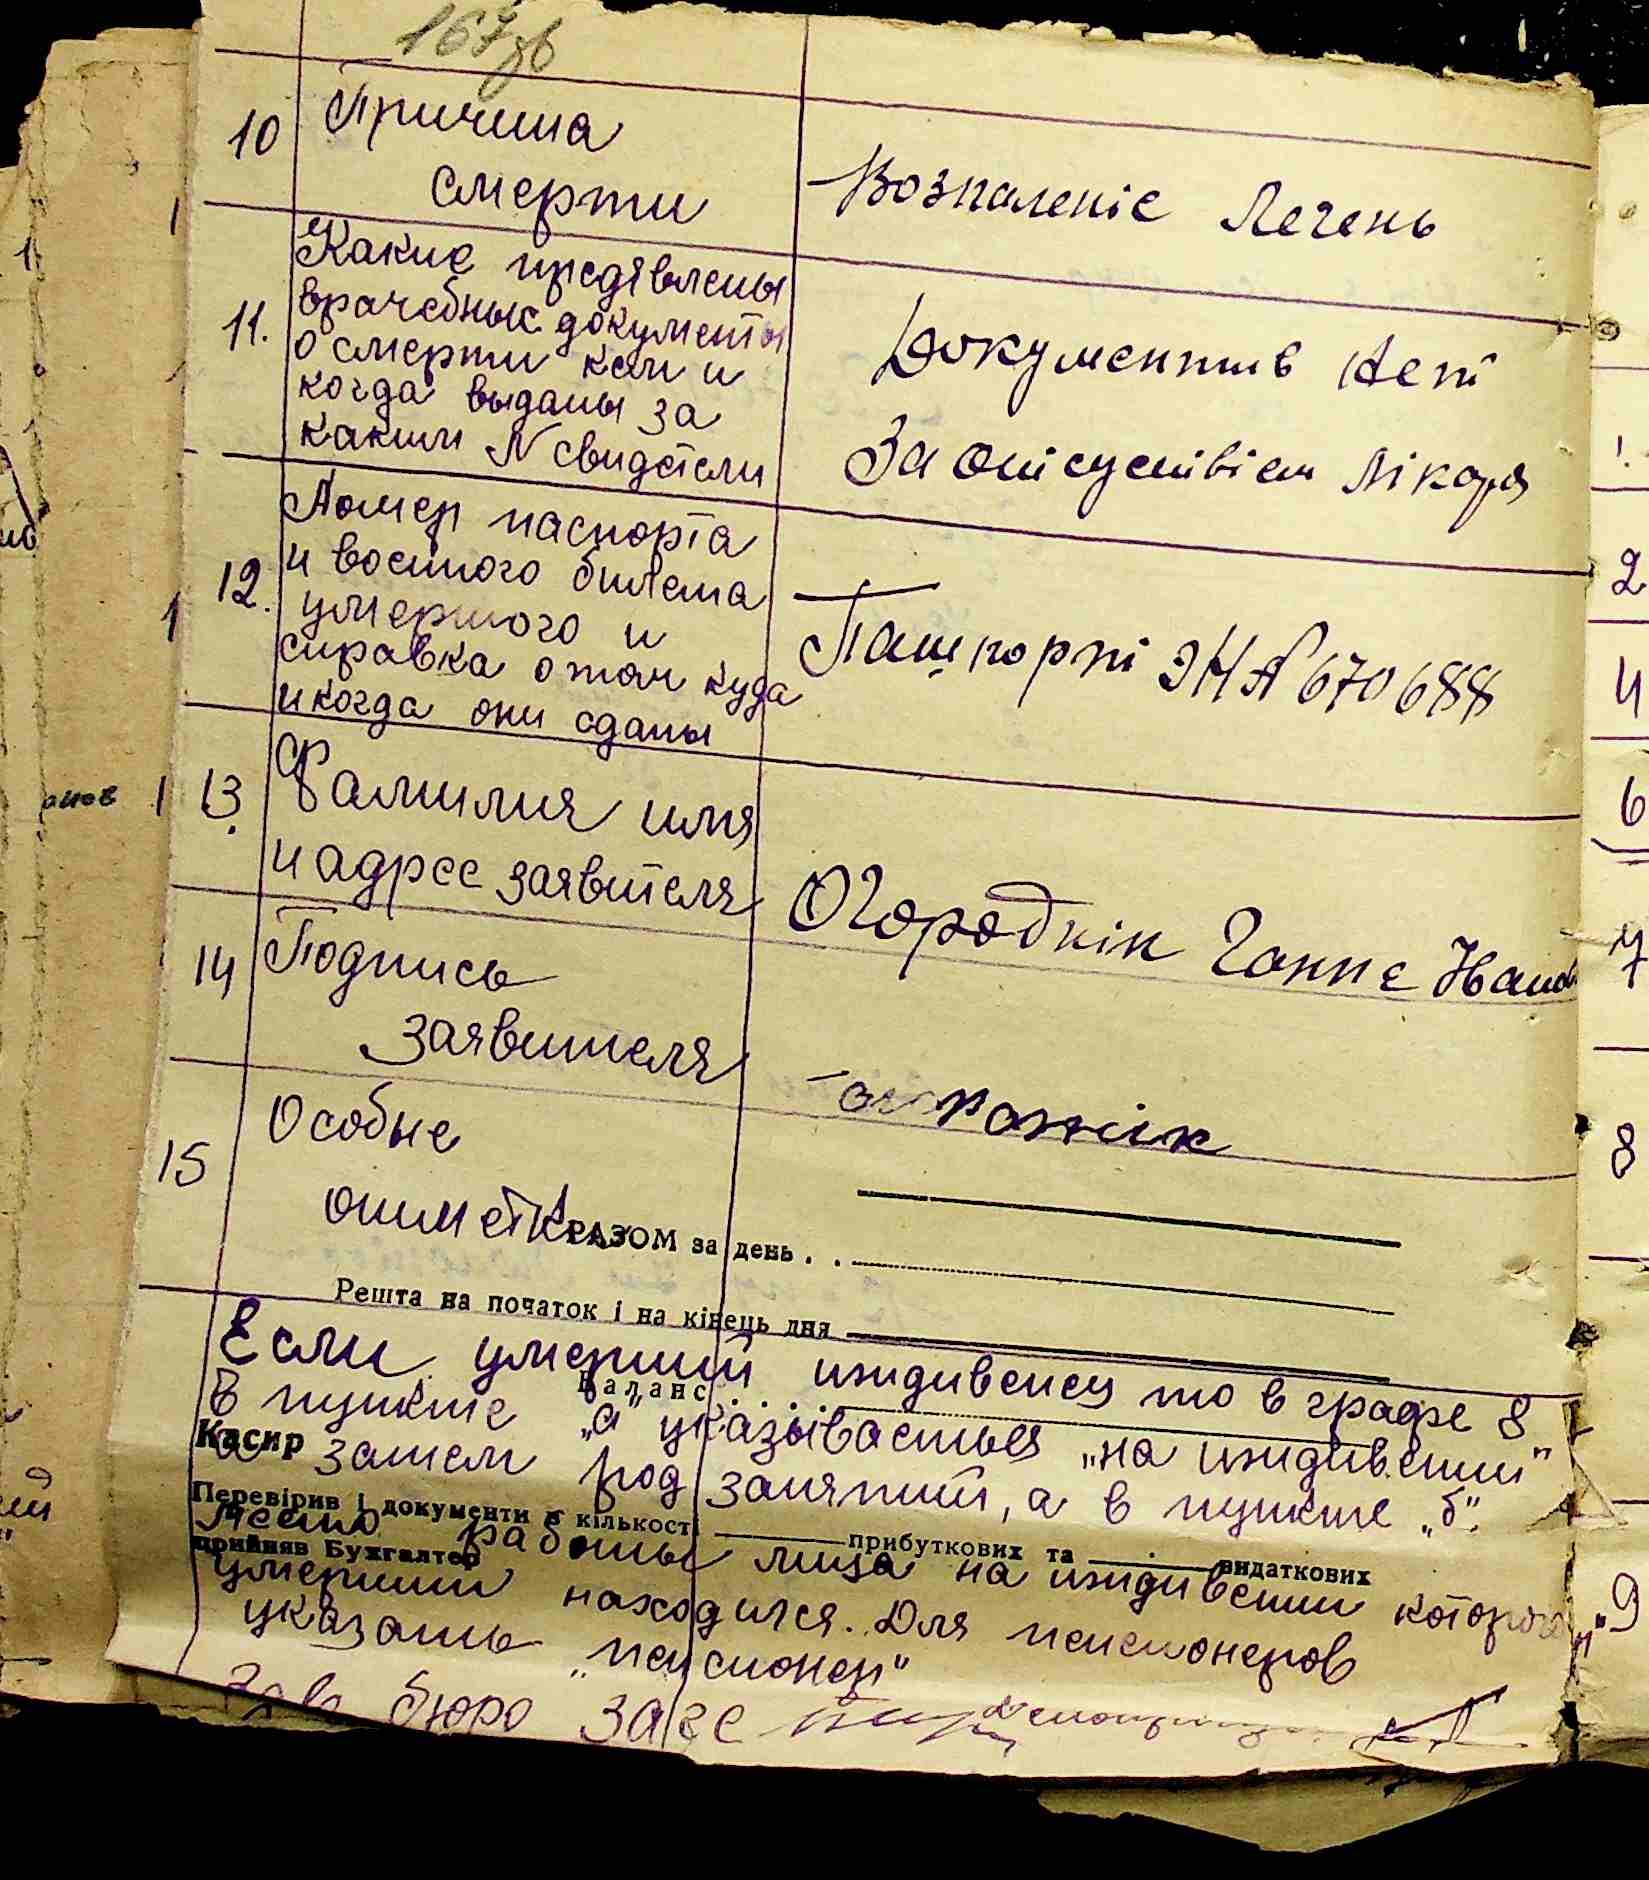 167зв
10 Причина
смерти
Возпаленіє Легень
11. Какие предявлены
врачебные документы
о смерти кем и
когда выданы за
каким N свидетели
Документив нет
За отсуствієм лікаря
12. Номер паспорта
и военного билета
умершого и
справка о том куда
и когда они сданы
Пашпорт ЭНА 670688
13. Фамилия имя
и адрес заявителя
Огороднік Ганнє Иван
14 Подпись
заявителя
15 Особые
отметк
РАЗОМ за день . .
Решта на початок і на кінець дня
Если умерший иждивенец то в графе 8
Баланс
в пункте „а" указывается „на иждивении"
Касир
а затем род занятий, а в пункте „б".
Перевірив і документи в кількості прибуткових та видаткових
Место работы лица на иждивении которого
прийняв Бухгалтер
умерший находился. Для пенсионеров
указать „пенсионер"
Зав бюро загс
1
1
1
анов
1
2
4
6
7
8
9